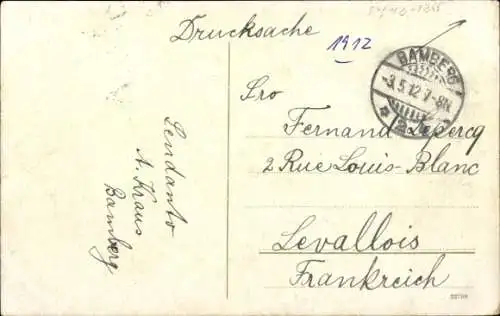 Drucksache
1912
BAMBERG
-3.5.12.7-8N.
Sro
Fernand Lepercq
2 Rue Louis-Blanc
Levallois
Frankreich
Sendanto
A. Kraus
Bamberg